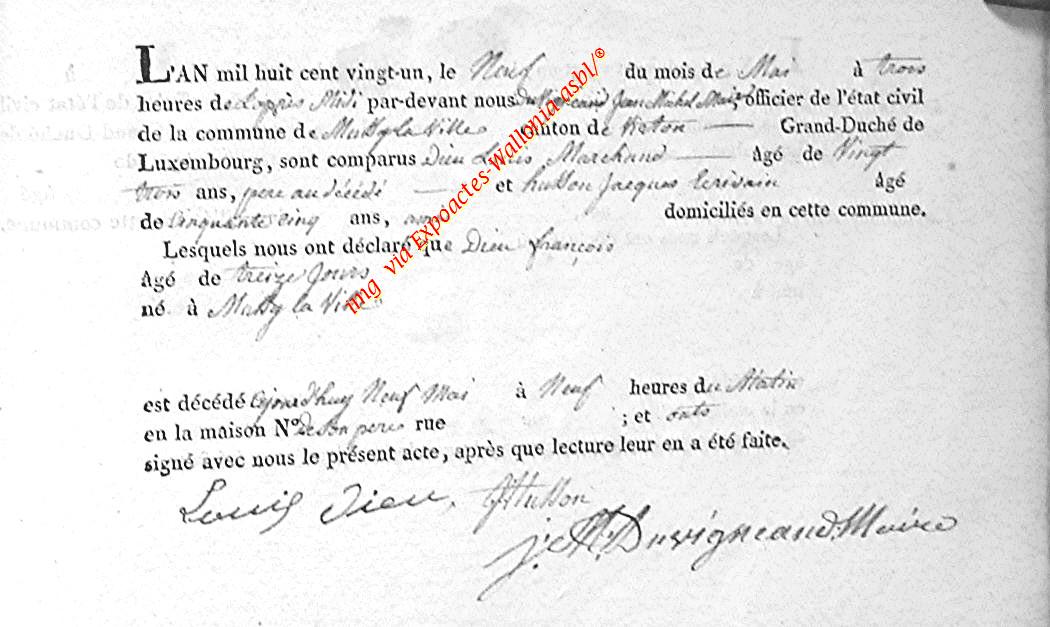 L'AN mil huit cent vingt-un, le Neuf du mois de Mai à trois
heures de L'après Midi par-devant nous Duvigneaud Jean Michel Maire, officier de l'état civil
de la commune de Mussy la Ville canton de Virton — Grand-Duché de
Luxembourg, sont comparus Dieu Louis Marchand — âgé de Vingt
trois ans, pere au décédé — et husson Jacques Ecrivain âgé
de Cinquante cinq ans, ami domiciliés en cette commune.
Lesquels nous ont déclaré que Dieu françois
âgé de treize Jours
né à Mussy la Ville
est décédé cejourd'huy Neuf Mai à Neuf heures du Matin
en la maison N° de son pere rue ; et onts
signé avec nous le présent acte, après que lecture leur en a été faite.
Louis Dieu, JHusson
j. M. Duvigneaud Maire
img via Expoactes-Wallonia-asbl/®